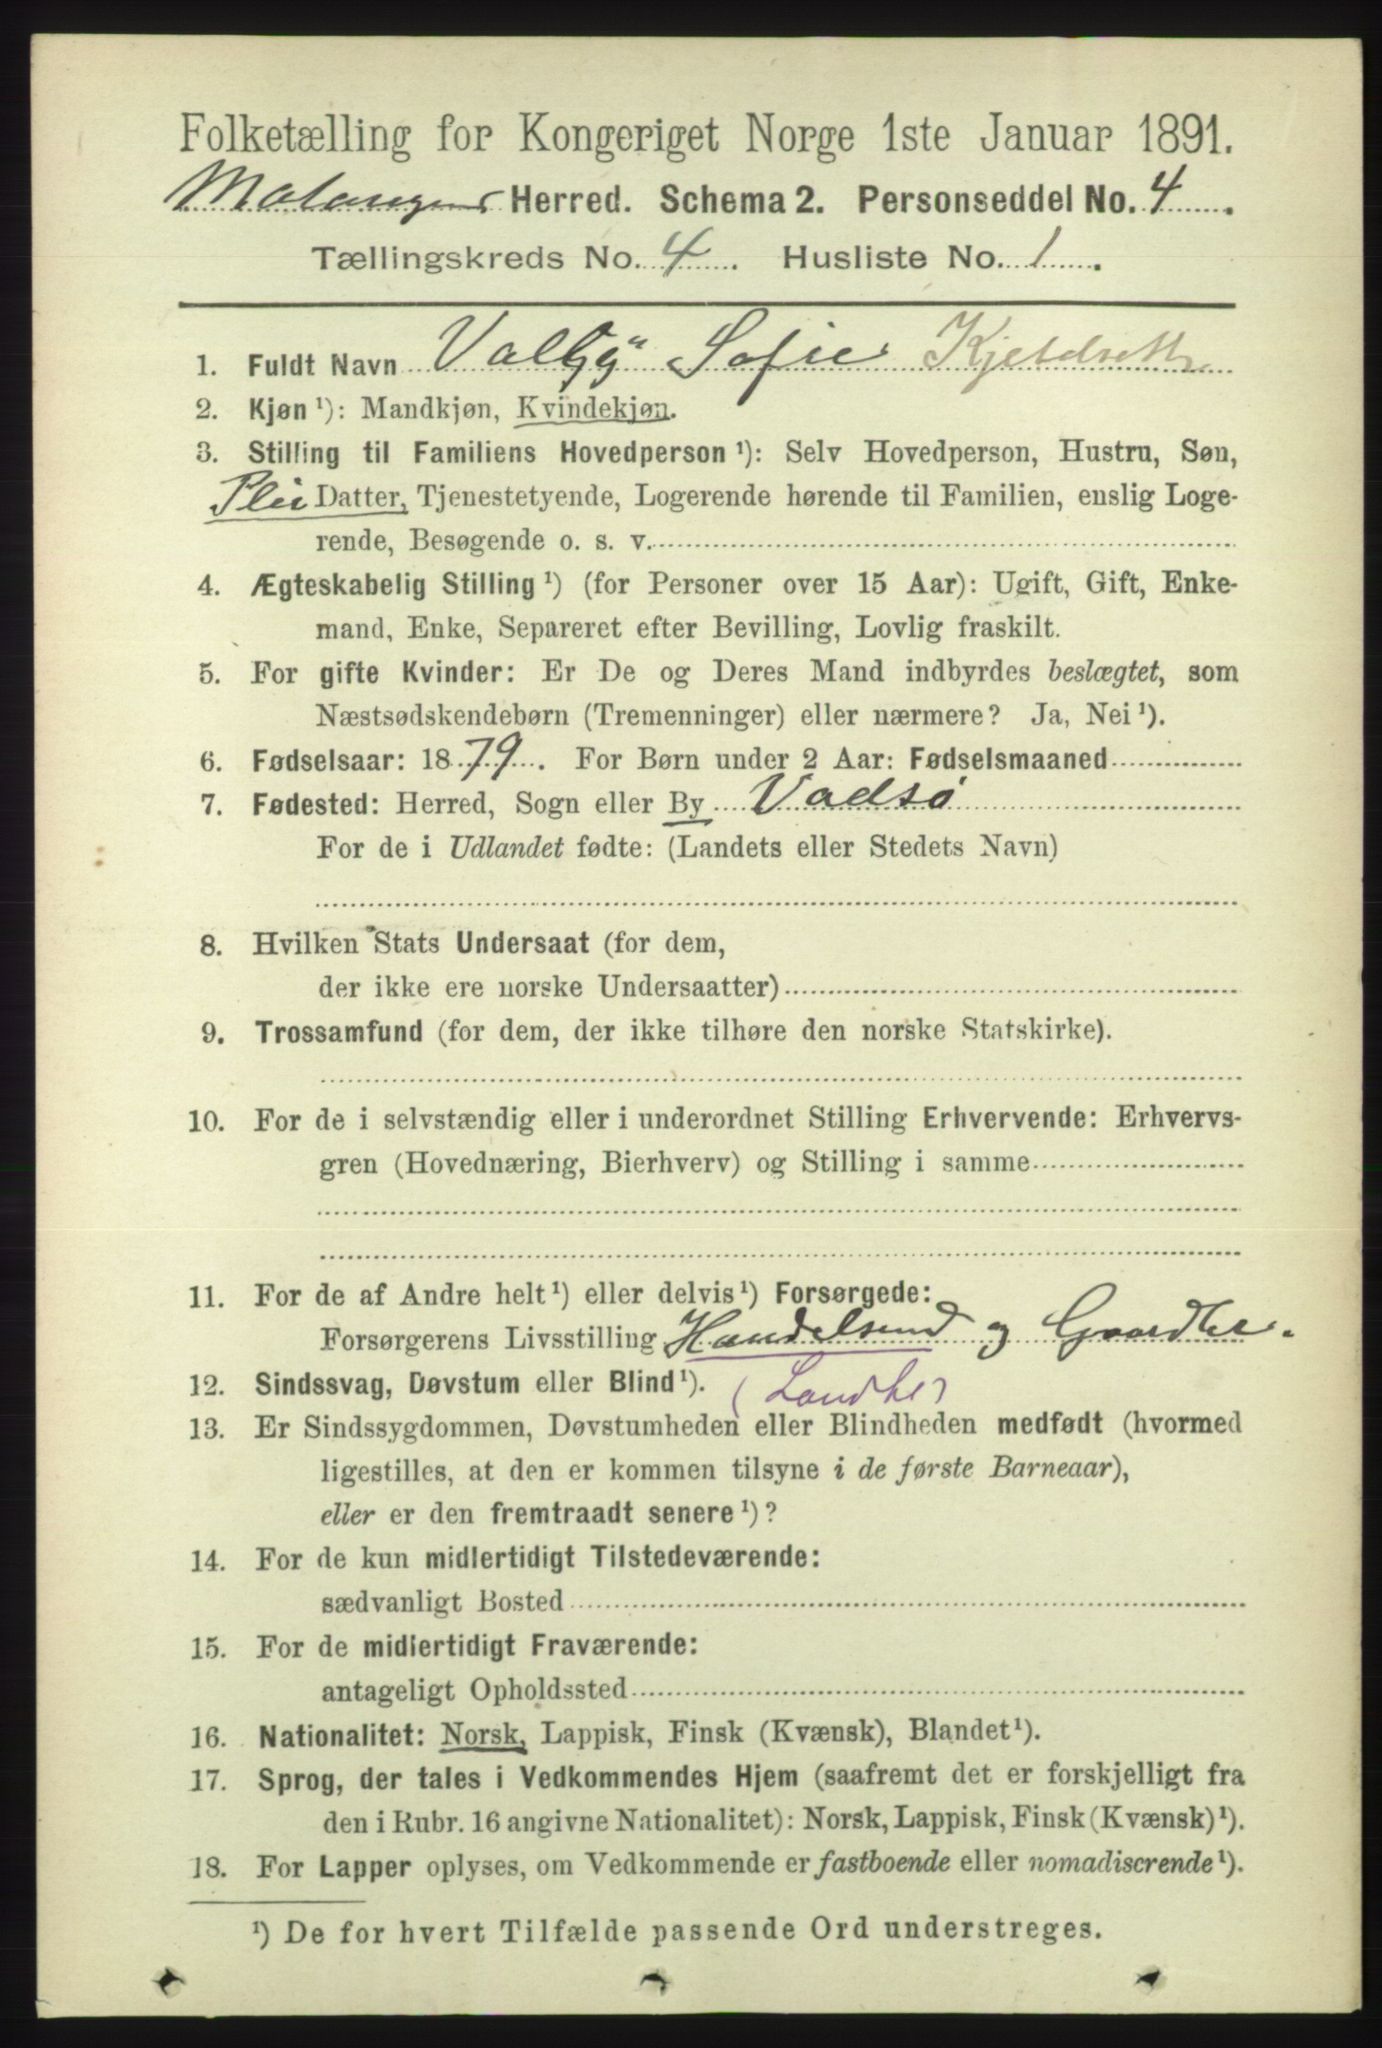 Folketælling for Kongeriget Norge 1ste Januar 1891.
Malangens Herred. Schema 2. Personseddel No. 4.
Tællingskreds No. 4. Husliste No. 1.
1. Fuldt Navn Valby Sofie Kjeldseth
2. Kjøn ¹): Mandkjøn, Kvindekjøn.
3. Stilling til Familiens Hovedperson ¹): Selv Hovedperson, Hustru, Søn,
Plei Datter, Tjenestetyende, Logerende hørende til Familien, enslig Loge-
rende, Besøgende o. s. v.
4. Ægteskabelig Stilling ¹) (for Personer over 15 Aar): Ugift, Gift, Enke-
mand, Enke, Separeret efter Bevilling, Lovlig fraskilt.
5. For gifte Kvinder: Er De og Deres Mand indbyrdes beslægtet, som
Næstsødskendebørn (Tremenninger) eller nærmere? Ja, Nei ¹).
6. Fødselsaar: 1879. For Børn under 2 Aar: Fødselsmaaned
7. Fødested: Herred, Sogn eller By Vadsø
For de i Udlandet fødte: (Landets eller Stedets Navn)
8. Hvilken Stats Undersaat (for dem,
der ikke ere norske Undersaatter)
9. Trossamfund (for dem, der ikke tilhøre den norske Statskirke).
10. For de i selvstændig eller i underordnet Stilling Erhvervende: Erhvervs-
gren (Hovednæring, Bierhverv) og Stilling i samme
11. For de af Andre helt ¹) eller delvis ¹) Forsørgede:
Forsørgerens Livsstilling Handelsmd og Gaardbr.
12. Sindssvag, Døvstum eller Blind ¹). (Landhe)
13. Er Sindssygdommen, Døvstumheden eller Blindheden medfødt (hvormed
ligestilles, at den er kommen tilsyne i de første Barneaar),
eller er den fremtraadt senere ¹)?
14. For de kun midlertidigt Tilstedeværende:
sædvanligt Bosted
15. For de midlertidigt Fraværende:
antageligt Opholdssted
16. Nationalitet: Norsk, Lappisk, Finsk (Kvænsk), Blandet ¹).
17. Sprog, der tales i Vedkommendes Hjem (saafremt det er forskjelligt fra
den i Rubr. 16 angivne Nationalitet): Norsk, Lappisk, Finsk (Kvænsk) ¹).
18. For Lapper oplyses, om Vedkommende er fastboende eller nomadiserende ¹).
¹) De for hvert Tilfælde passende Ord understreges.